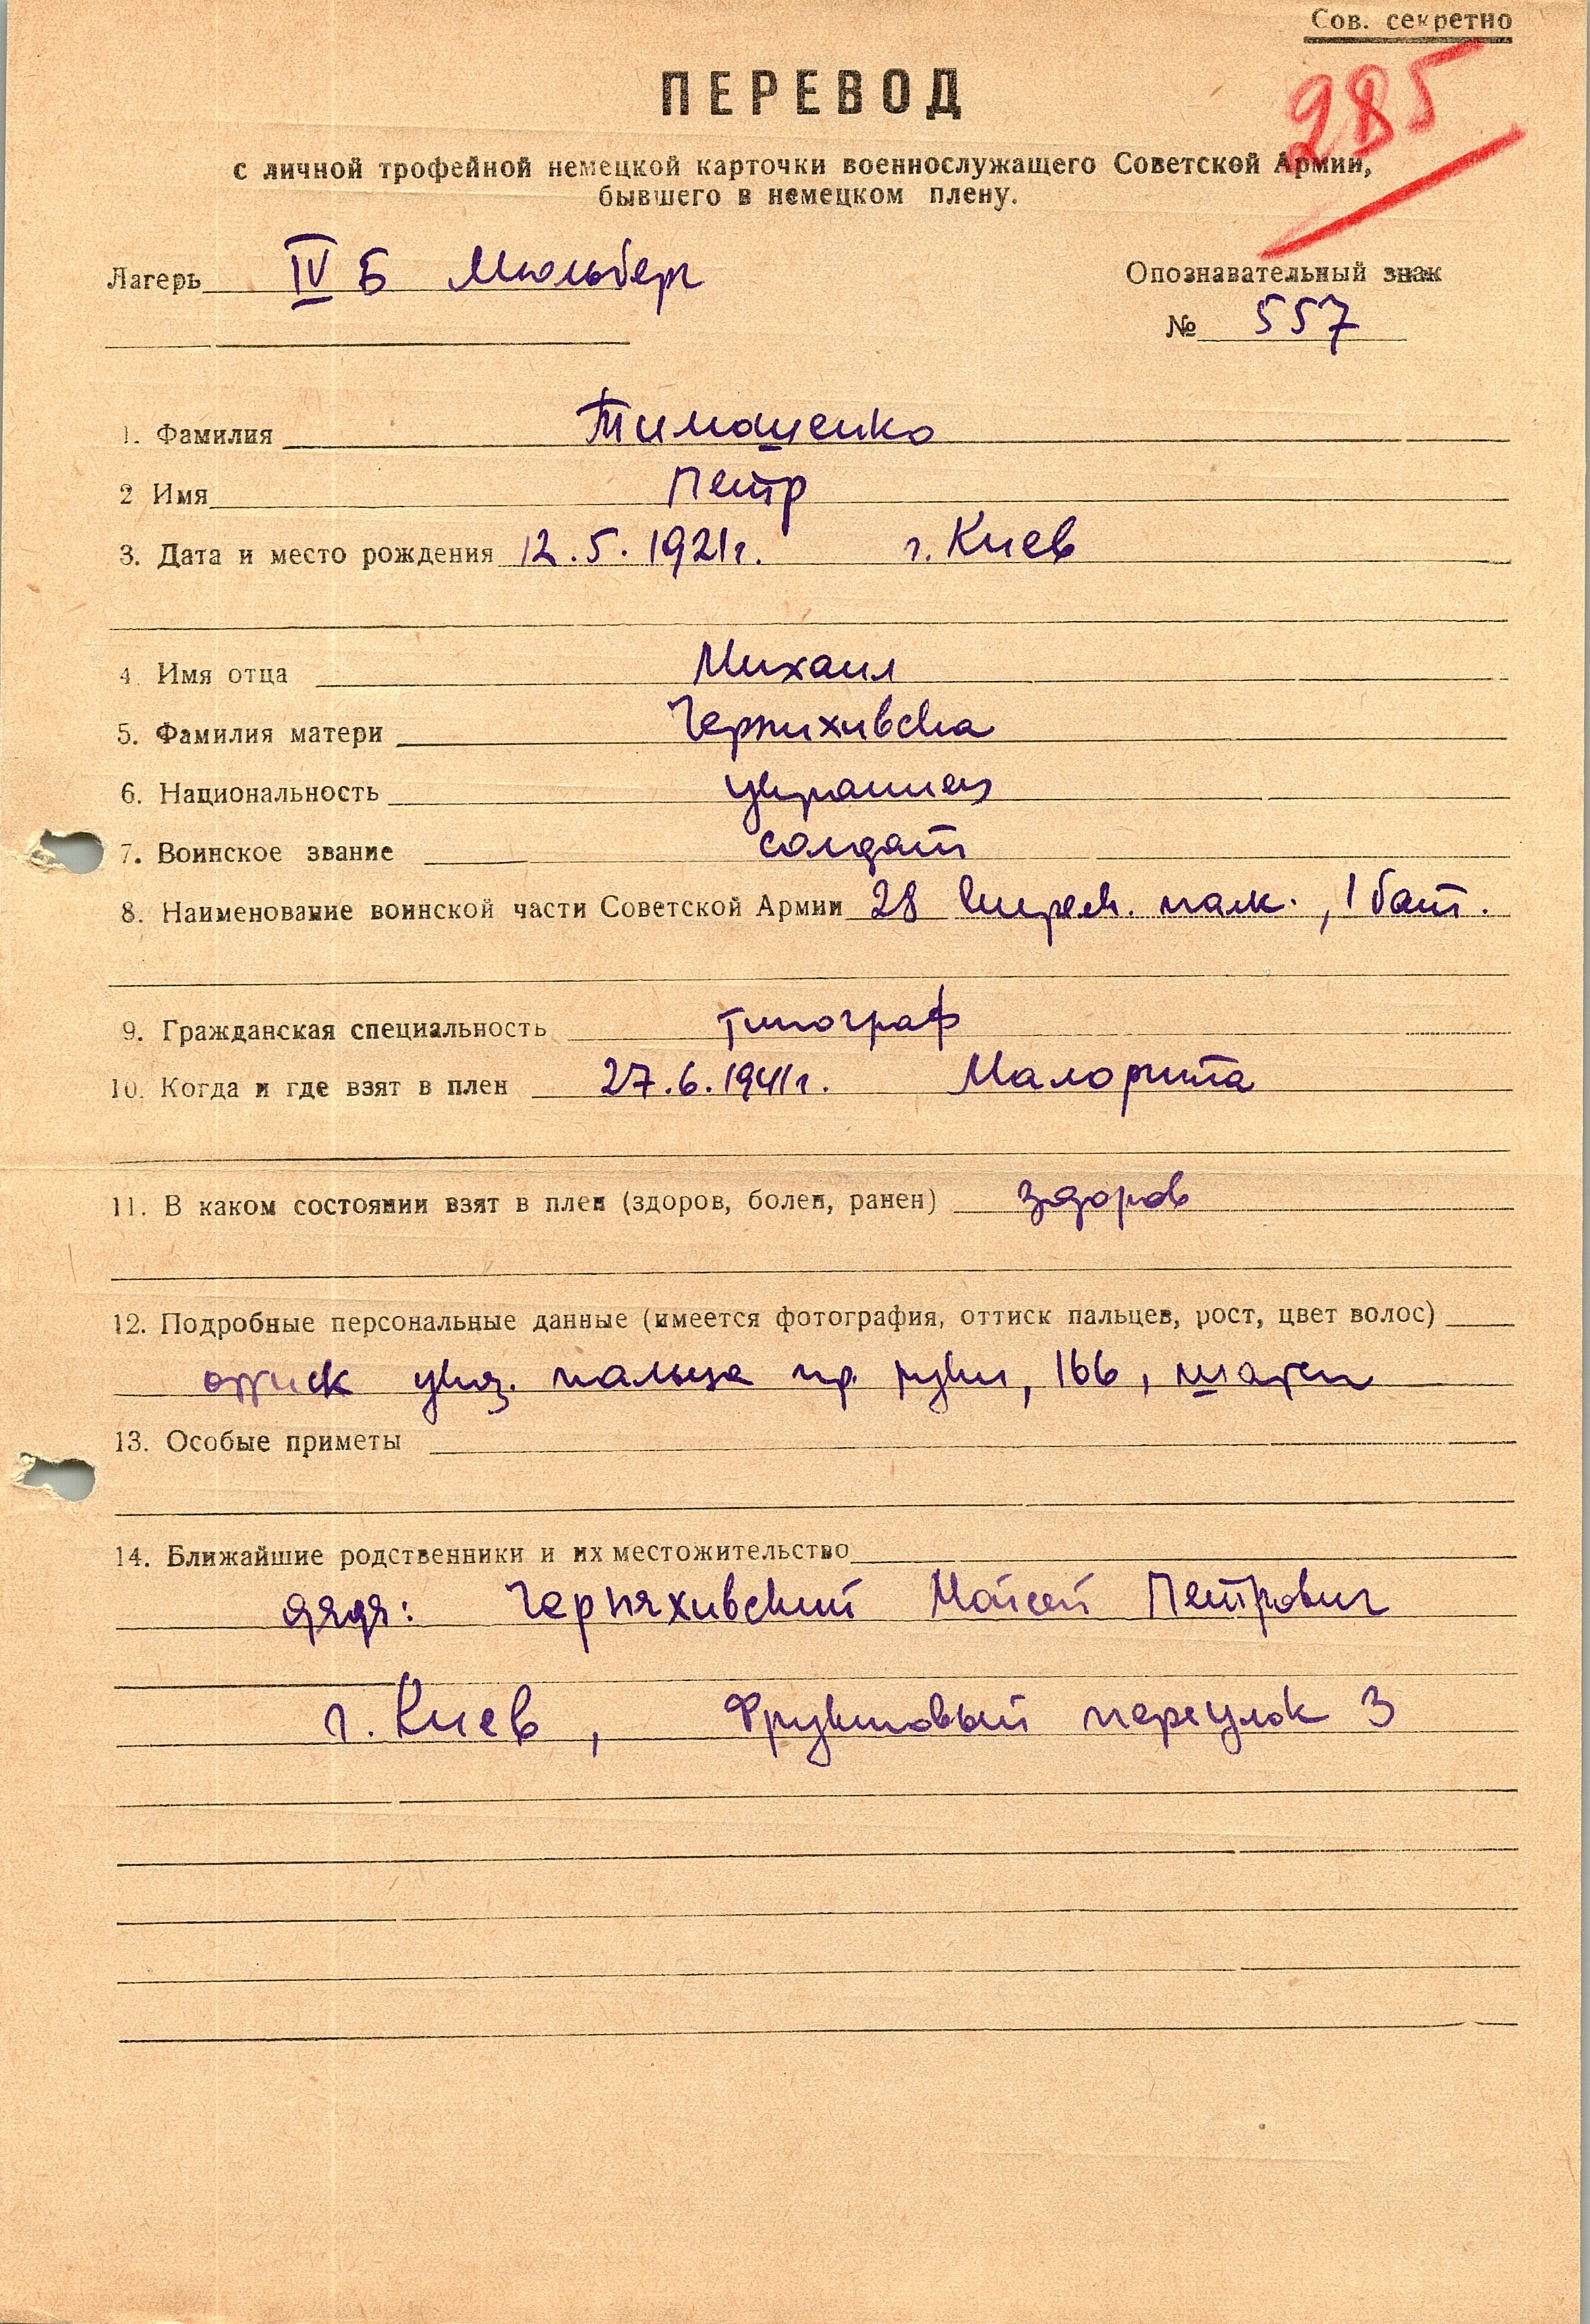 Сов. секретно
285
ПЕРЕВОД
с личной трофейной немецкой карточки военнослужащего Советской Армии,
бывшего в немецком плену.
Лагерь IV Б Мюльберг
Опознавательный знак
№ 557
1. Фамилия Тимошенко
2 Имя Петр
3. Дата и место рождения 12.5.1921г. г. Киев
4. Имя отца Михаил
5. Фамилия матери
6. Национальность украинец
7. Воинское звание солдат
8. Наименование воинской части Советской Армии 28 стрелк. полк., 1 бат.
9. Гражданская специальность типограф
10. Когда и где взят в плен 27.6.1941г. Малорита
11. В каком состоянии взят в плен (здоров, болен, ранен) здоров
12. Подробные персональные данные (имеется фотография, оттиск пальцев, рост, цвет волос)
оттиск указ. пальца пр. руки, 166, шатен
13. Особые приметы
14. Ближайшие родственники и их местожительство
дядя: Черняхивский Мойсей Петрович
г. Киев, Фруктовый переулок 3